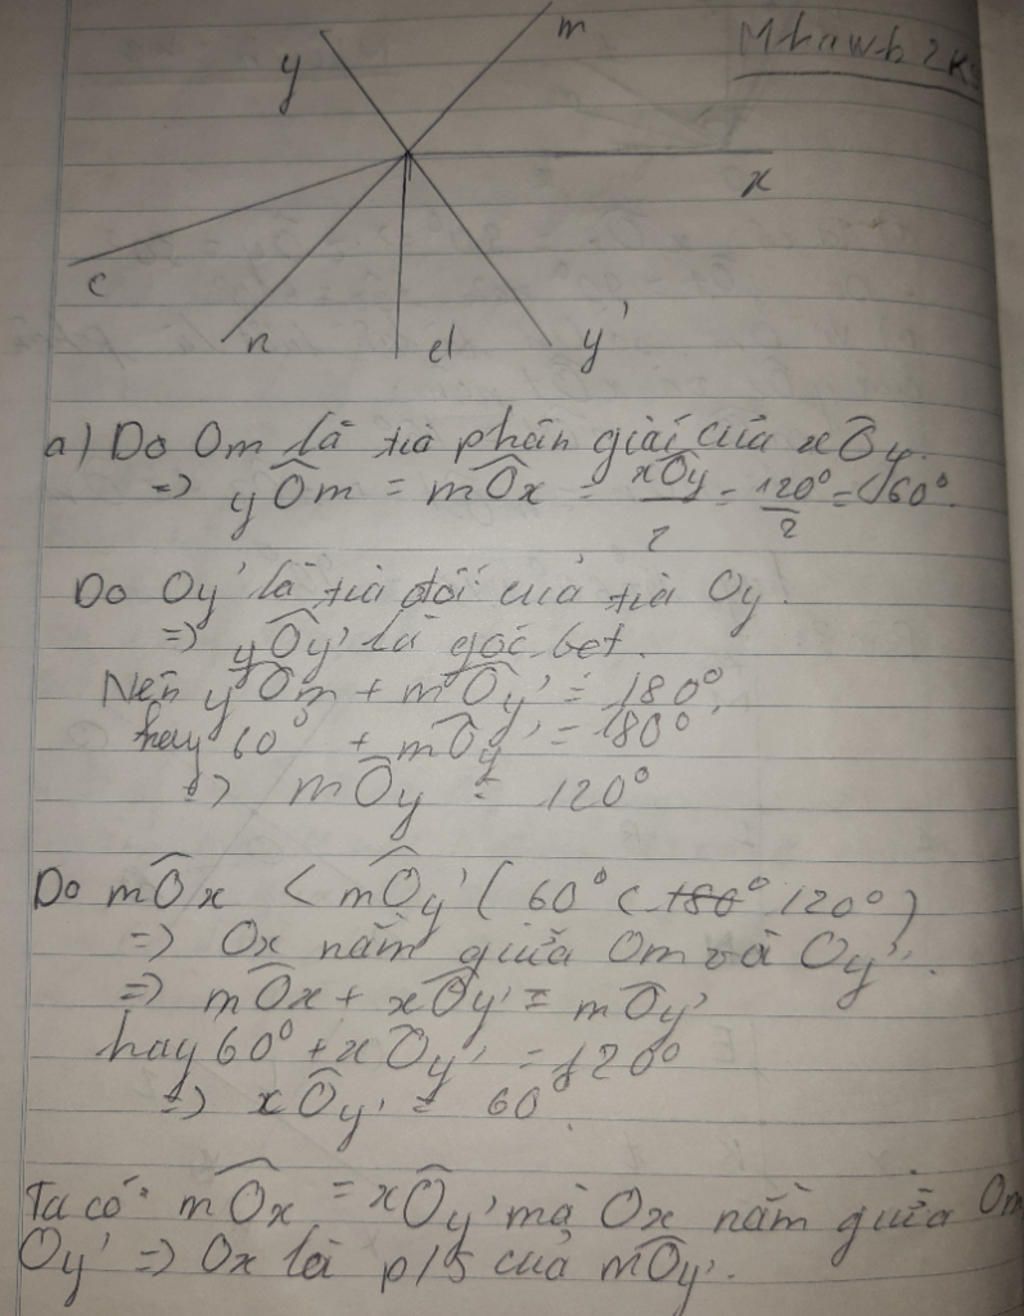 Mhawb2k9
m
y
x
c
n
d
y'
a) Do Om là tia phân giác của xÔy.
=> yÔm = mÔx = xÔy/2 = 120°/2 = 60°.
Do Oy' là tia đối của tia Oy.
=> yÔy' là góc bet.
Nên yÔm + mÔy' = 180°.
hay 60° + mÔy' = 180°
=> mÔy = 120°
Do mÔx < mÔy' ( 60° < 180° 120° )
=> Ox nằm giữa Om và Oy'.
=> mÔx + xÔy' = mÔy'
hay 60° + xÔy' = 120°
=> xÔy' = 60°.
Ta có: mÔx = xÔy' mà Ox nằm giữa Om
Oy' => Ox là p/s của mÔy'.